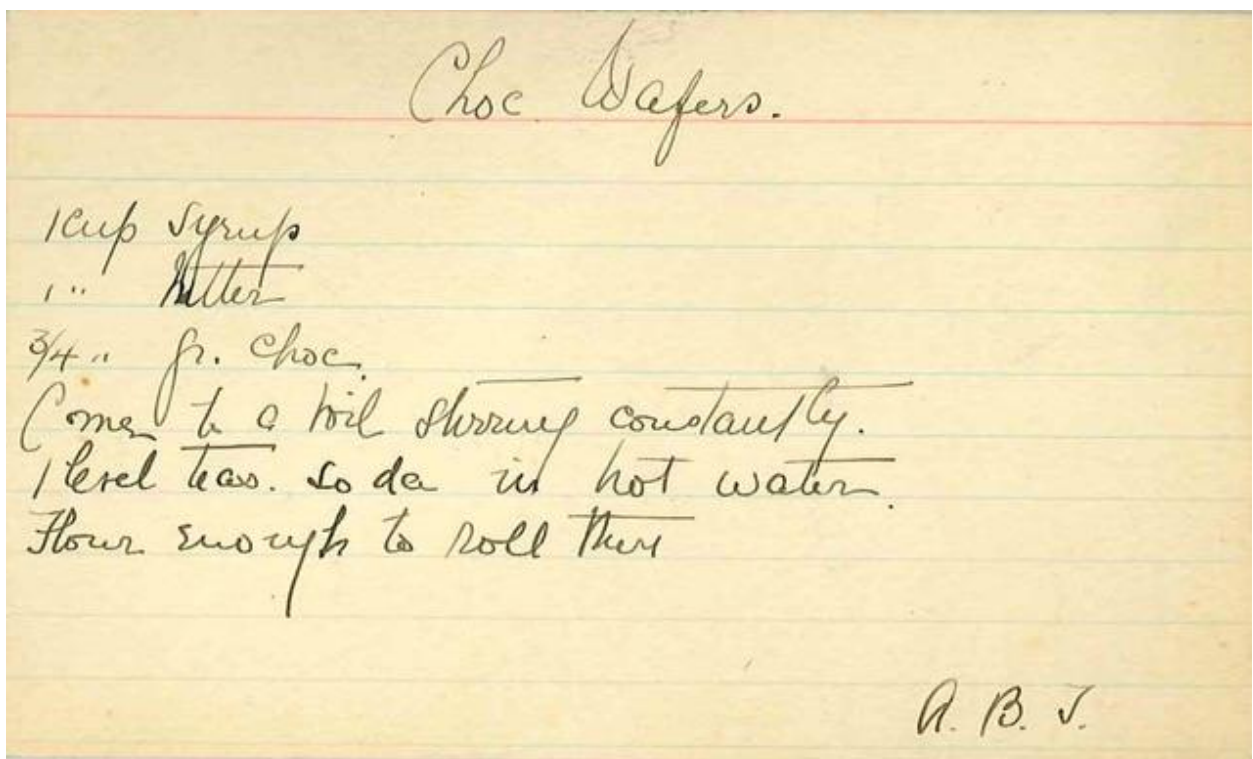 Choc Wafers.
1 cup syrup
1 " butter
3/4 " gr. choc.
Comes to a boil stirring constantly.
1 level teas. soda in hot water.
Flour enough to roll thin
A. B. T.